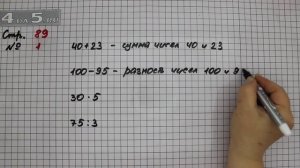 4 для 5
Стр. 89
№ 1
40+23 - сумма чисел 40 и 23
100-95 - разность чисел 100 и 9
30 · 5
75 : 3